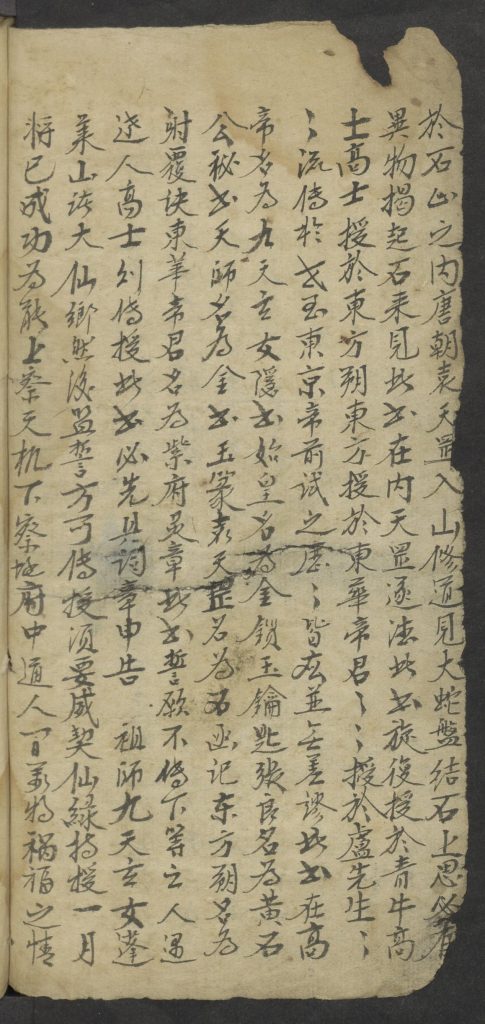 於石山之内唐朝袁天罡入山修道見大蛇盤結石上思必有
異物揭起石来見此書在内天罡遂法此書旋復授於青牛高
士高士授於東方朔東方授於東華帝君〻〻授於盧先生〻
〻流傳於世至東京帝前試之應〻皆應並无差謬此書在高
帝名為九天玄女隱書始皇名為金鎖玉鑰匙張良名為黄石
公秘書天師名為金書玉篆袁天罡名為石函记东方朔名為
射覆诀東華帝君名為紫府灵章此書誓願不傳下等之人遇
逹人高士刘傳授此書必先具詞章申告 祖師九天玄女蓬
萊山诸大仙卿然後盟誓方可傳授須要威契仙録持授一月
将已成功為能上察天机下察地府中道人間萬物禍福之情